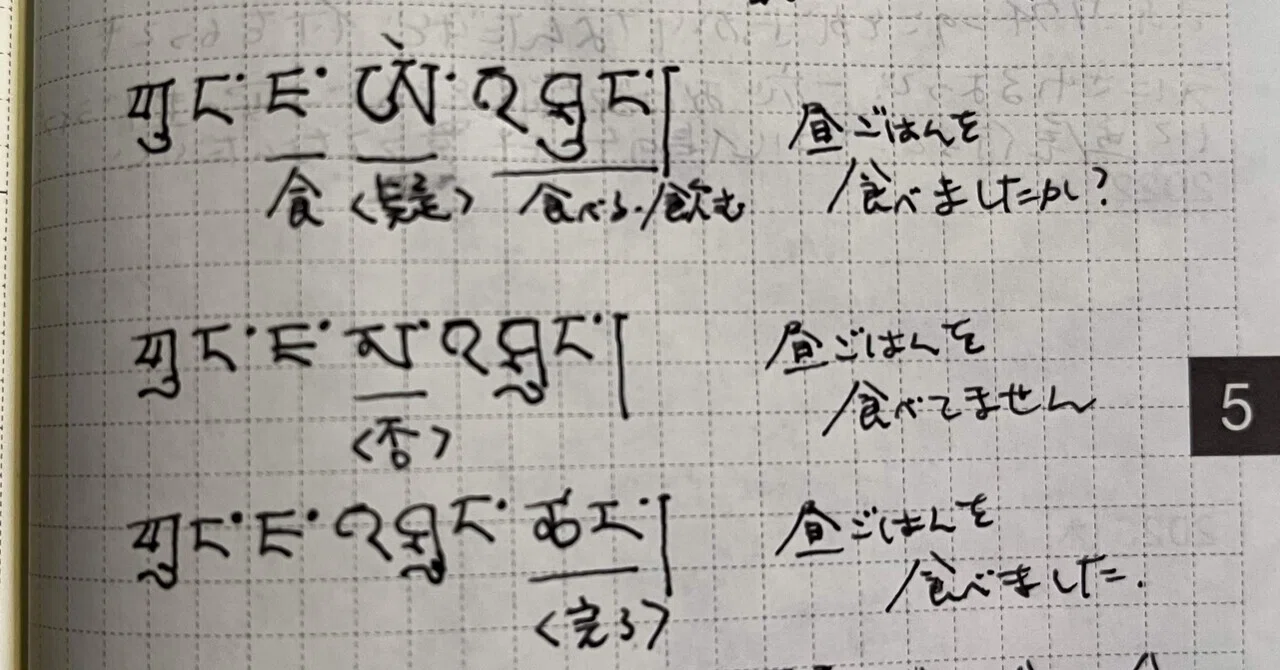 གུང་ཇ་ཨེ་འཐུང་།
食 〈疑〉 食べる/飲む
昼ごはんを
食べましたか?
གུང་ཇ་མ་འཐུང་།
〈否〉
昼ごはんを
食べてません
གུང་ཇ་འཐུང་ཚང་།
〈完了〉
昼ごはんを
食べました.
5